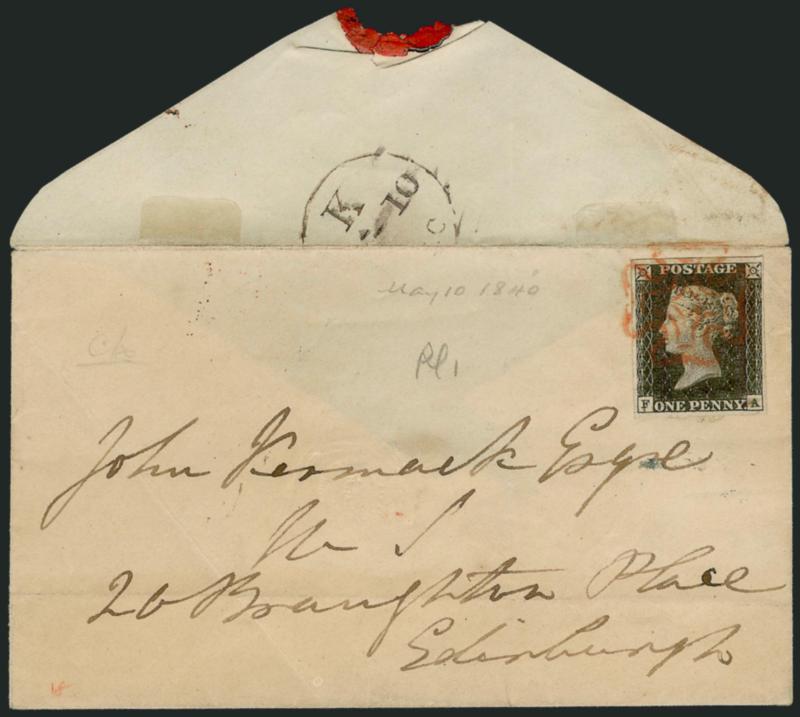 K
10
C
May 10 1840
POSTAGE
Pl 1
F ONE PENNY. A
John Kermack Esqre
W S
20 Braughton Place
Edinburgh